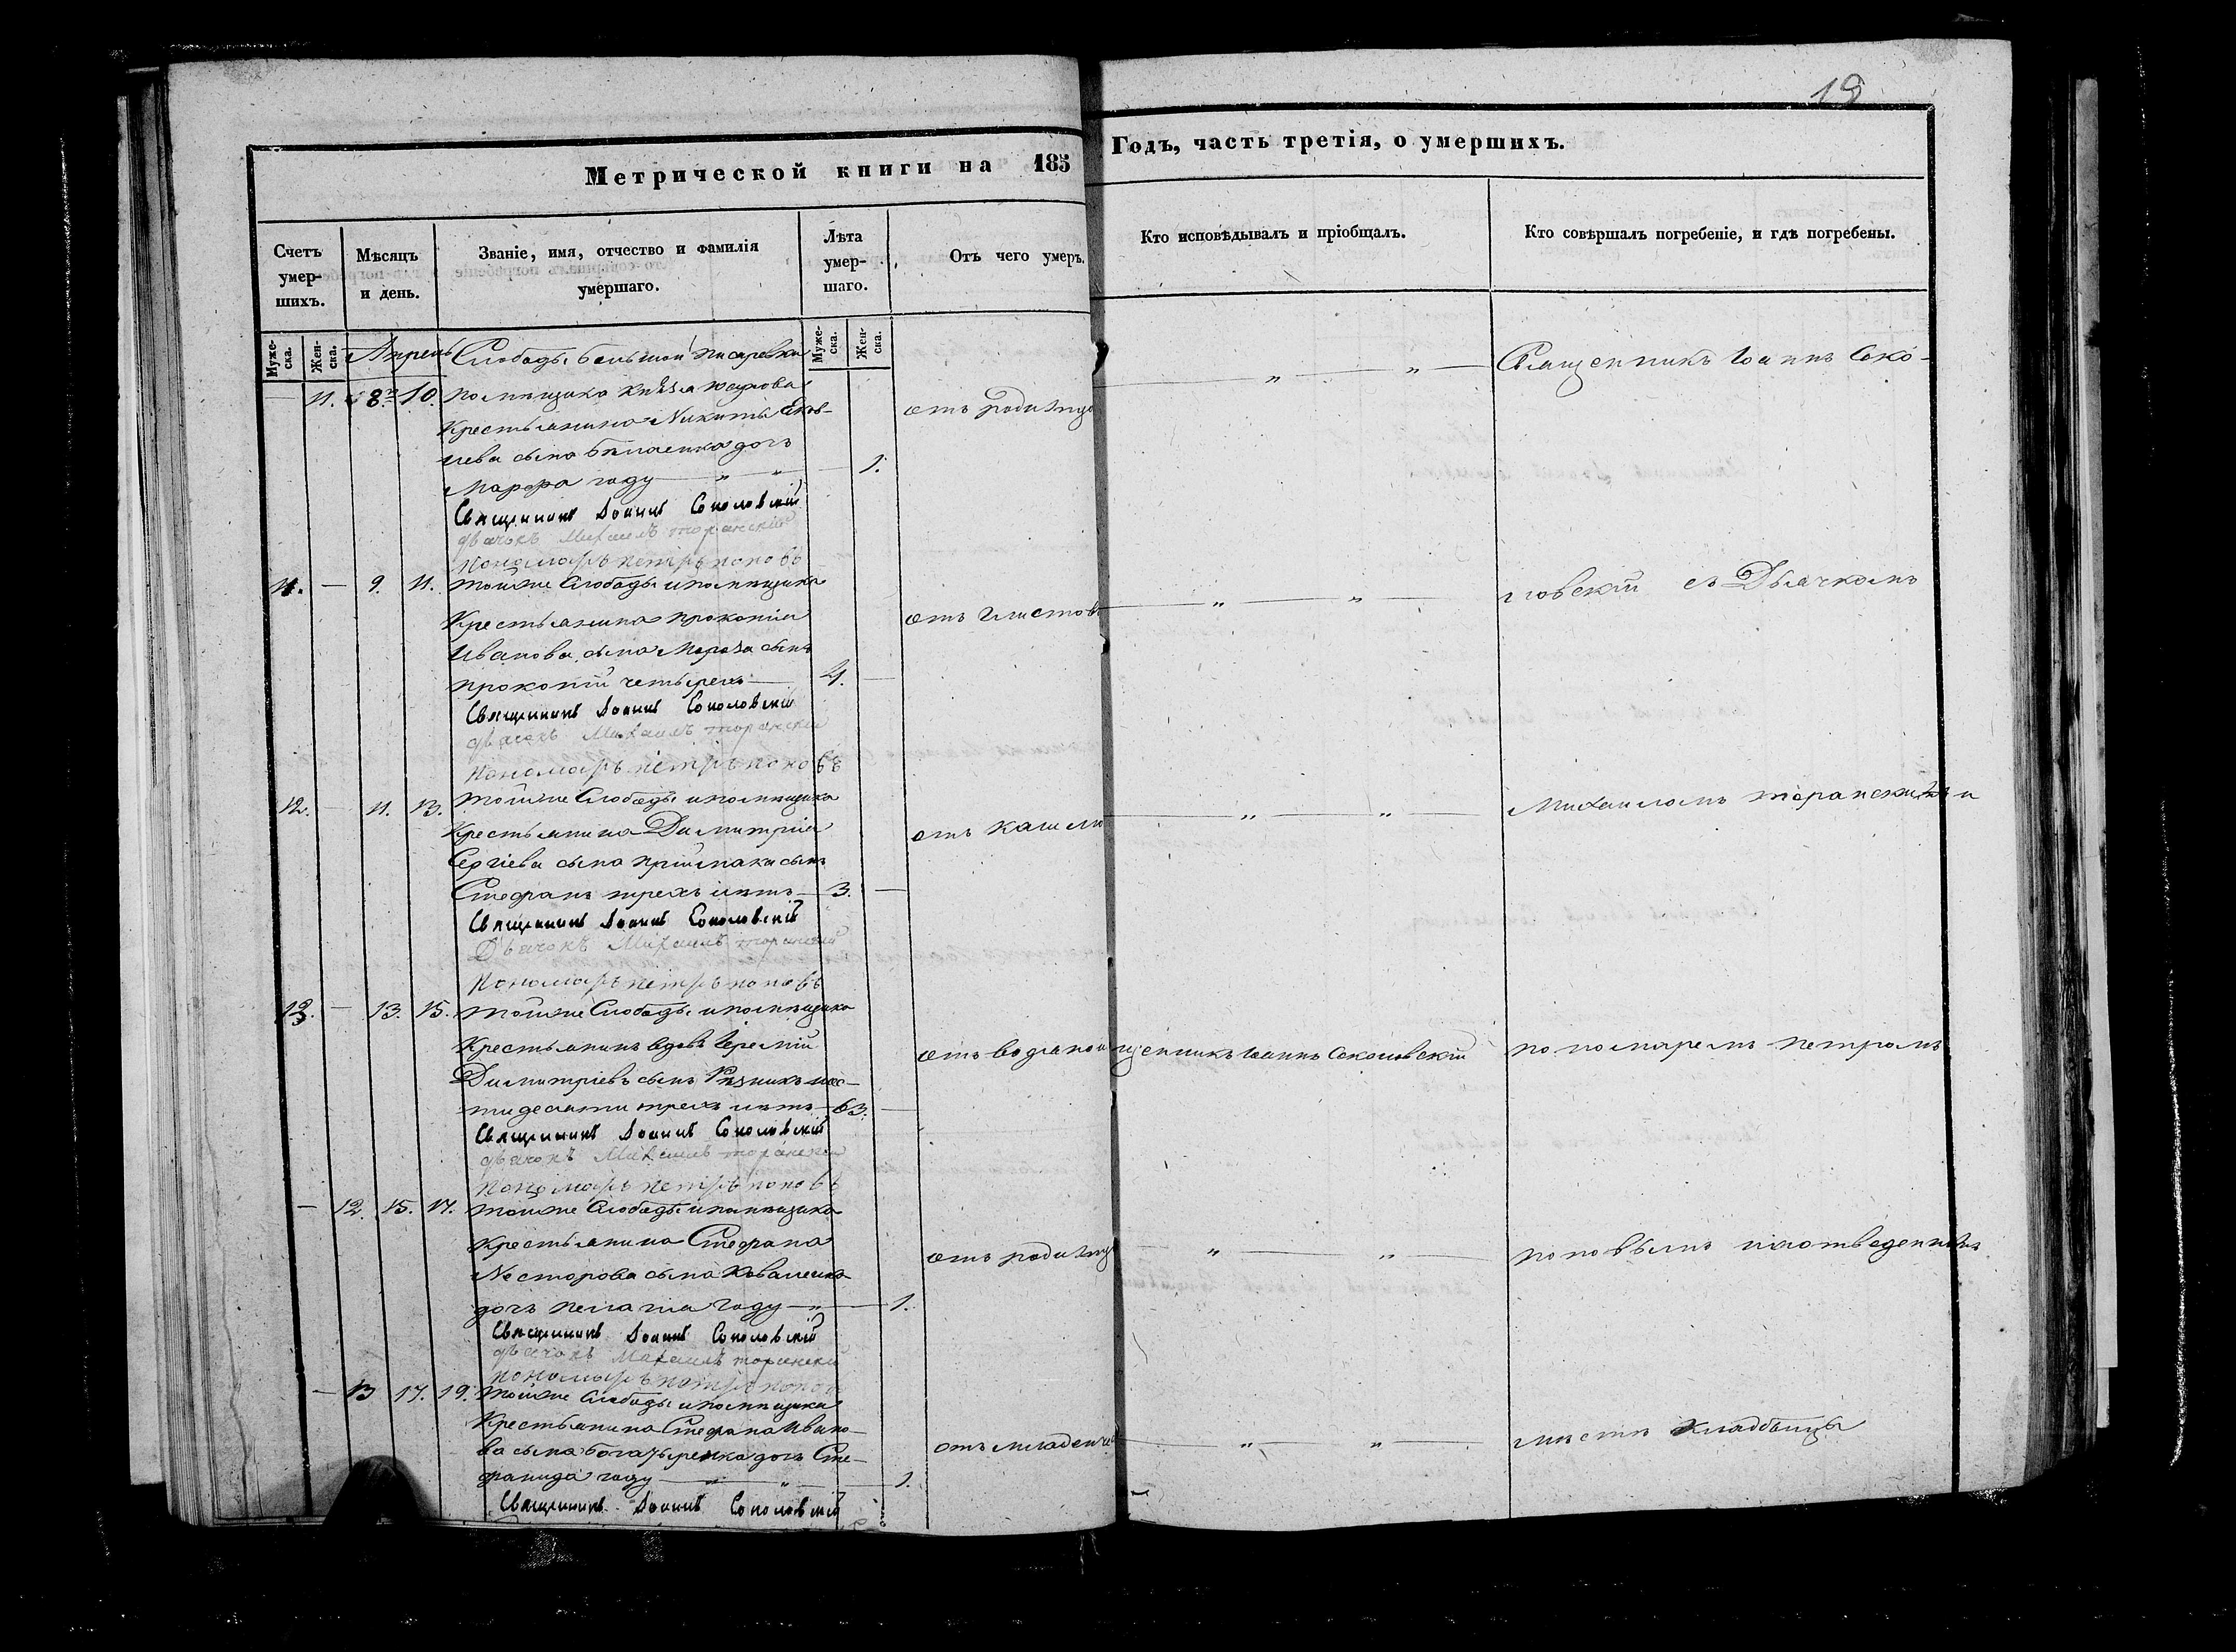 19
Метрической книги на 185
Годъ, часть третія, о умершихъ.
Счетъ умер-шихъ.
Мѣсяцъ и день.
Званіе, имя, отчество и фамилія умершаго.
Лѣта умер-шаго.
Отъ чего умеръ.
Кто исповѣдывалъ и пріобщалъ.
Кто совѣршалъ погребеніе, и гдѣ погребены.
Муже-ска.
Жен-ска.
Муже-ска.
Жен-ска.
Апрель Слободы большой писаревки
11. 8. 10. помѣщика князя юсупова
Крестьянина Никиты
сына дочь
Марфа году 1.
отъ родимца
Священникъ Іоаннъ Соколовскій
дьячокъ Михаилъ торанскій
пономарь петръ поповъ
11. 9. 11. тойже Слободы и помѣщика
Крестьянина прокопія
Иванова сына Мороза сынъ
прокопій четырехъ 4.
отъ глистовъ
Священникъ Іоаннъ Соколовскій
дьячокъ Михаилъ торанскій
пономарь петръ поповъ
12. 11. 13. тойже Слободы и помѣщика
Крестьянина Димитрія
Сергіева сына приймака сынъ
Стефанъ трехъ лѣтъ 3.
отъ кашлю
Священникъ Іоаннъ Соколовскій
Дьячокъ Михаилъ торанскій
пономарь петръ поповъ
13. 13. 15. тойже Слободы и помѣщика
Крестьянинъ вдовъ Іеремій
Димитріевъ сынъ Рѣзникъ шес-
тидесяти трехъ лѣтъ 63.
отъ водяной
щенникъ Іоаннъ Соколовскій
Священникъ Іоаннъ Соколовскій
дьячокъ Михаилъ торанскій
пономарь петръ поповъ
12. 15. 17. тойже Слободы и помѣщика
Крестьянина Стефана
Несторова сына
дочь пелагія году 1.
отъ родимца
Священникъ Іоаннъ Соколовскій
дьячокъ Михаилъ торанскій
пономарь петръ поповъ
13 17. 19. тойже Слободы и помѣщика
Крестьянина Стефана Ивано-
ва сына богатыренка дочь Сте-
фанида году 1.
отъ младенче
Священникъ Іоаннъ Соколовскій
Священникъ Іоаннъ Соко-
ловскій съ Дьячкомъ
Михаиломъ торанскимъ и
пономаремъ петромъ
поповымъ наотведенномъ
мѣстѣ кладбища